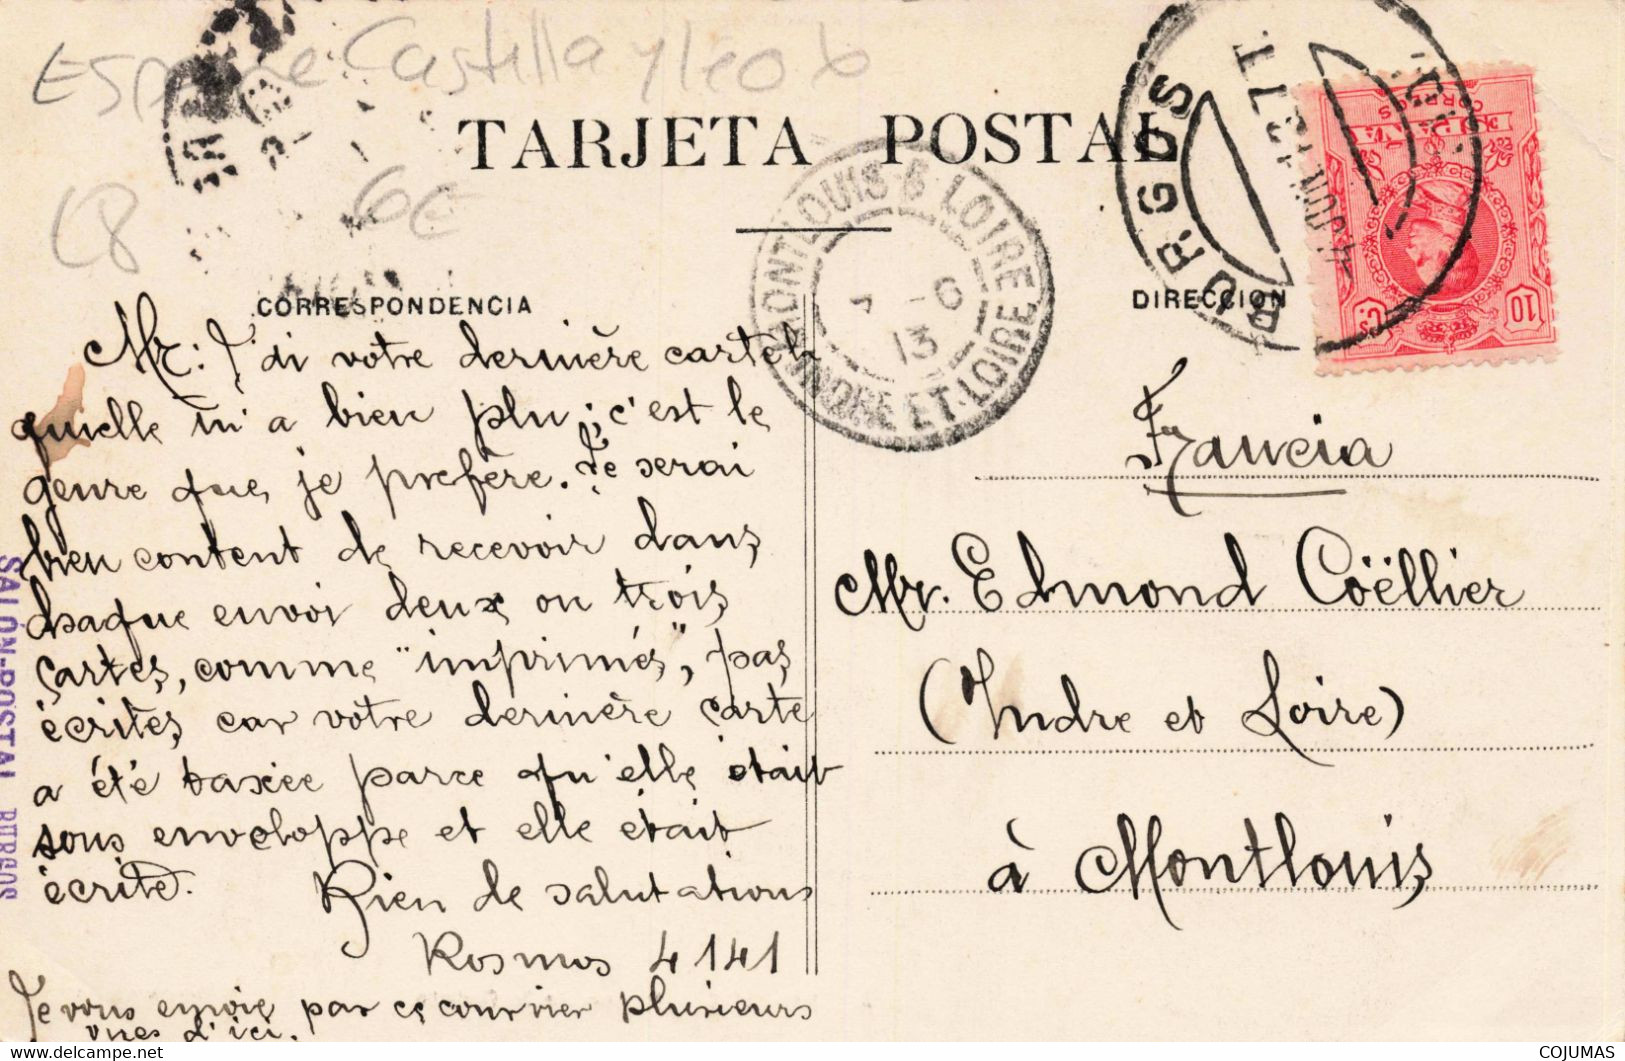 Espagne Castilla y Leob
L8
6€
TARJETA POSTAL
BURGOS
4 JUN 13 7 T
MONTLOUIS-S-LOIRE
-6
13
INDRE ET-LOIRE
ESPAÑA
CORREOS
10 Cs
CORRESPONDENCIA
DIRECCION
Mr: J'di votre dernière carte la
quelle m'a bien plu; c'est le
genre que, je prefère. Je serai
bien content de recevoir dans
chaque envoi deux ou trois
cartes, comme "imprimés", pas
écrites, car votre dernière carte
a été taxée parce qu'elle était
sous enveloppe et elle était
écrite. Rien de salutations
Kosmos 4141
Je vous envoie par ce courrier plusieurs
vues d'ici.
Francia
Mr. Edmond Coëllier
(Indre et Loire)
à Montlouis
SALÓN-POSTAL BURGOS
www.delcampe.net
COJUMAS